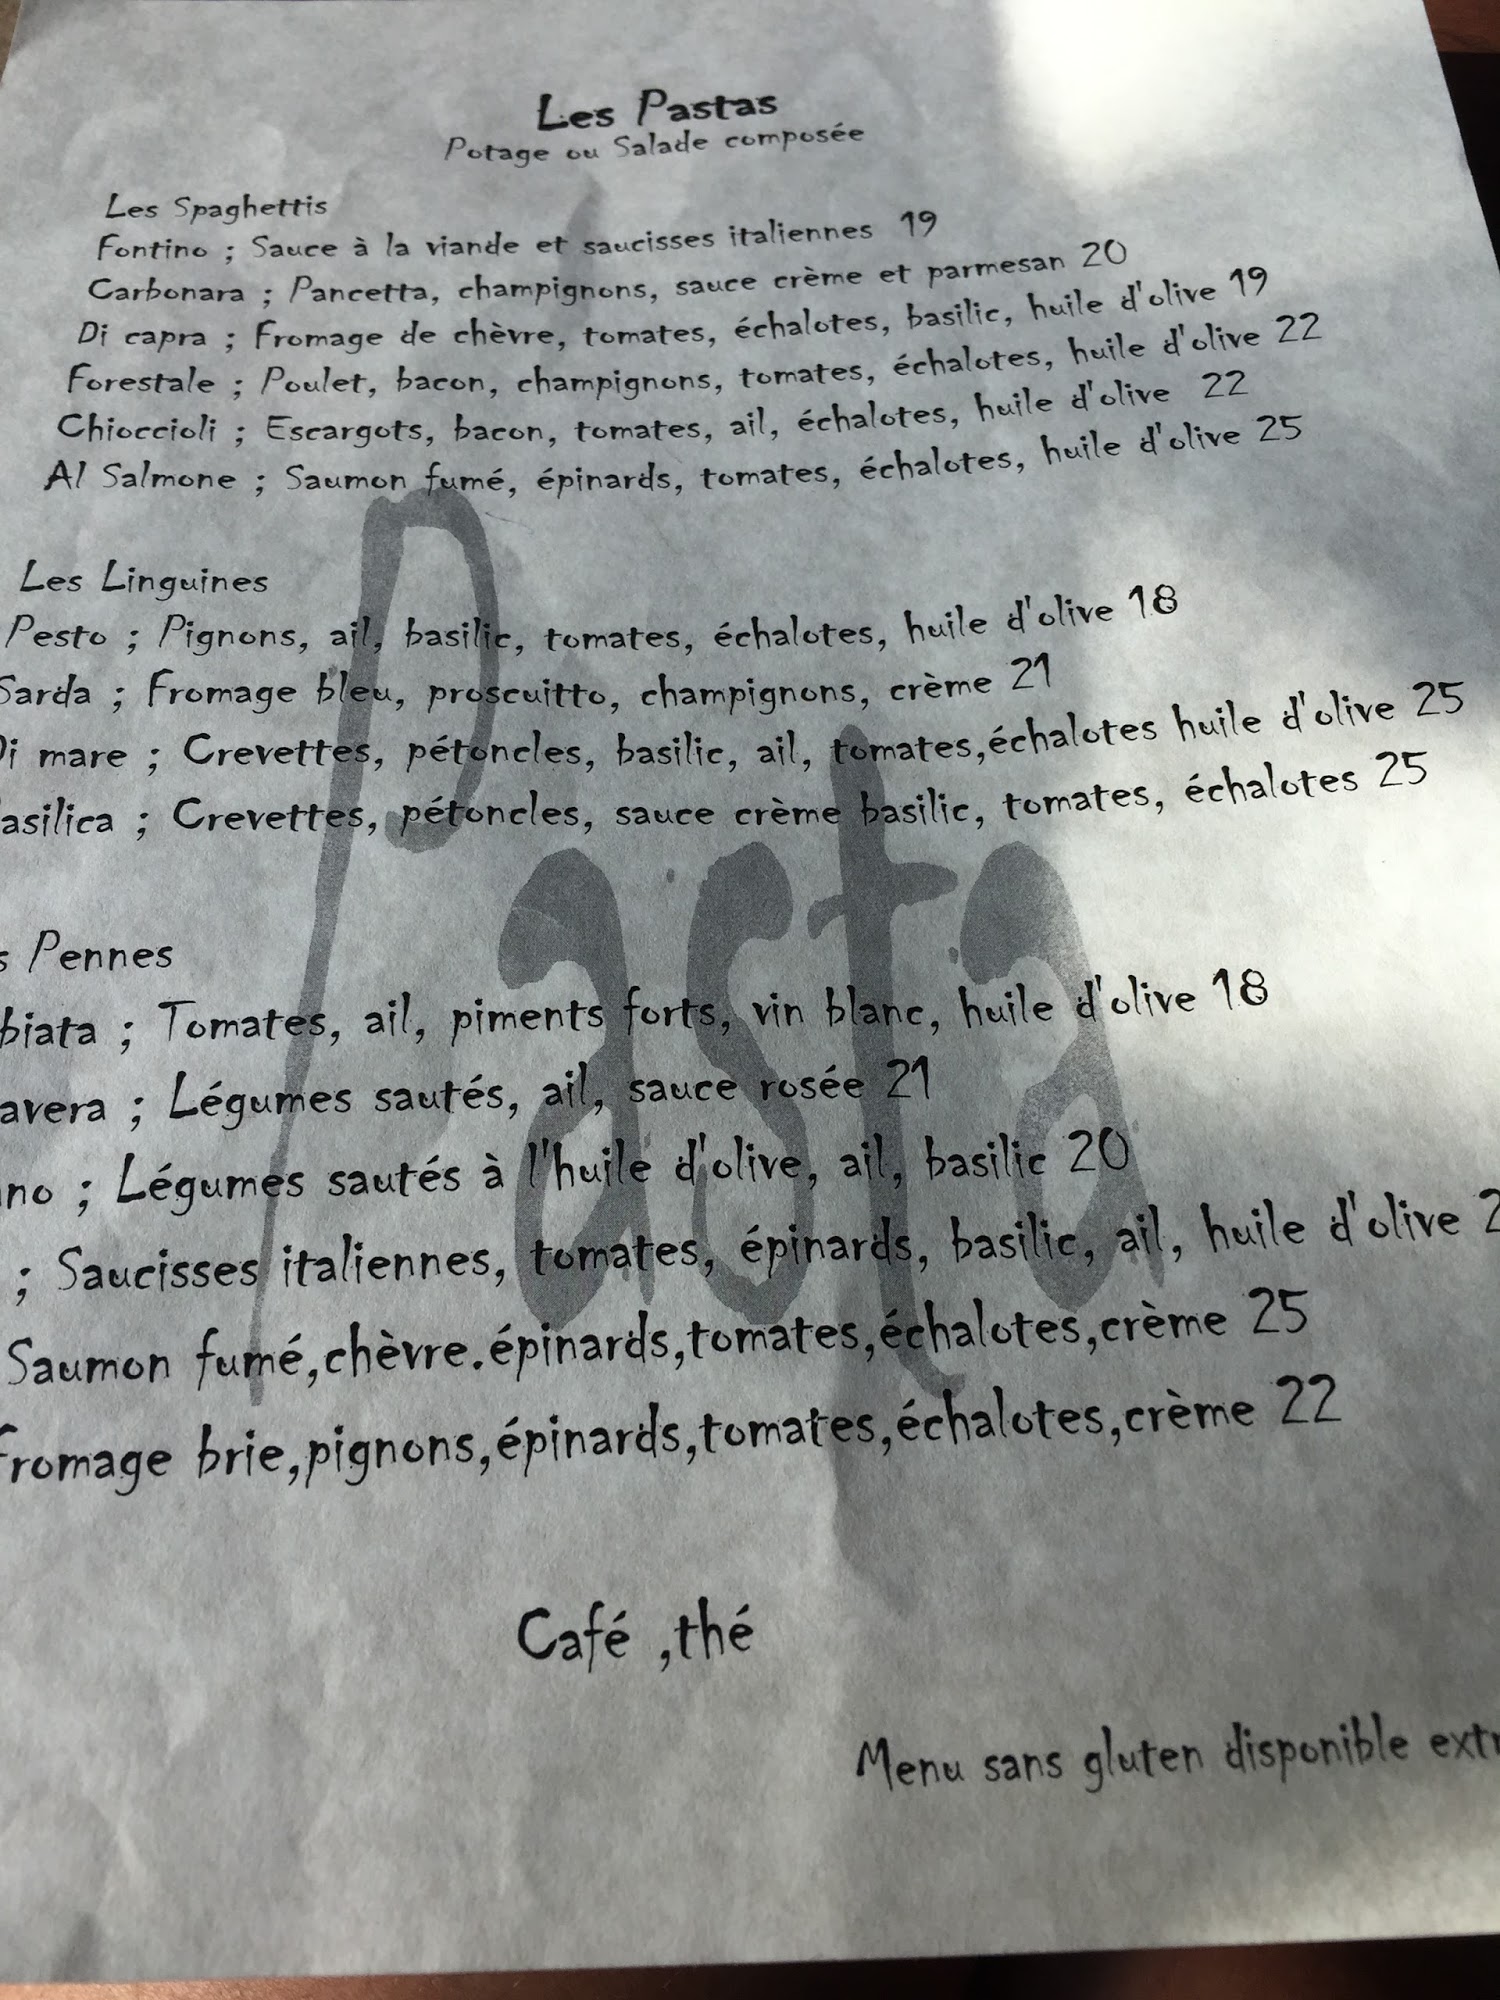 Les Pastas
Potage ou Salade composée
Les Spaghettis
Fontino ; Sauce à la viande et saucisses italiennes 19
Carbonara ; Pancetta, champignons, sauce crème et parmesan 20
Di capra ; Fromage de chèvre, tomates, échalotes, basilic, huile d'olive 19
Forestale ; Poulet, bacon, champignons, tomates, échalotes, huile d'olive 22
Chioccioli ; Escargots, bacon, tomates, ail, échalotes, huile d'olive 22
Al Salmone ; Saumon fumé, épinards, tomates, échalotes, huile d'olive 25
Pasta
Les Linguines
Pesto ; Pignons, ail, basilic, tomates, échalotes, huile d'olive 18
Sarda ; Fromage bleu, proscuitto, champignons, crème 21
Di mare ; Crevettes, pétoncles, basilic, ail, tomates,échalotes huile d'olive 25
asilica ; Crevettes, pétoncles, sauce crème basilic, tomates, échalotes 25
s Pennes
biata ; Tomates, ail, piments forts, vin blanc, huile d'olive 18
avera ; Légumes sautés, ail, sauce rosée 21
no ; Légumes sautés à l'huile d'olive, ail, basilic 20
; Saucisses italiennes, tomates, épinards, basilic, ail, huile d'olive 2
Saumon fumé,chèvre.épinards,tomates,échalotes,crème 25
Fromage brie,pignons,épinards,tomates,échalotes,crème 22
Café ,thé
Menu sans gluten disponible extr